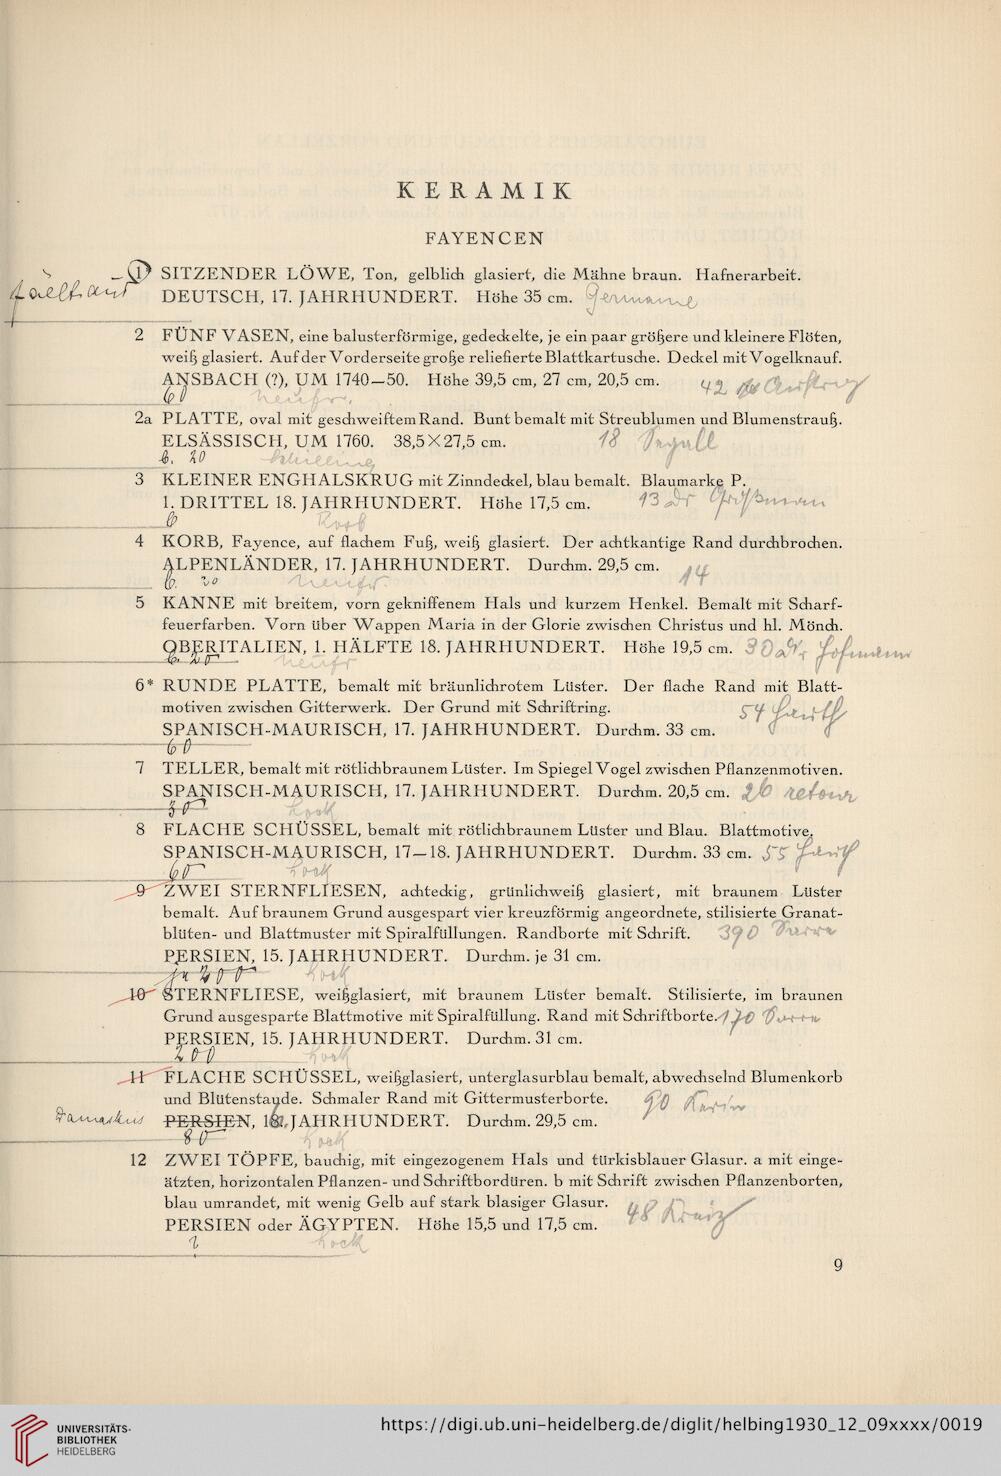 KERAMIK
FAYENCEN
1 SITZENDER LÖWE, Ton, gelblich glasiert, die Mähne braun. Hafnerarbeit.
DEUTSCH, 17. JAHRHUNDERT. Höhe 35 cm. Germanine
2 FÜNF VASEN, eine balusterförmige, gedeckelte, je ein paar größere und kleinere Flöten,
weiß glasiert. Auf der Vorderseite große reliefierte Blattkartusche. Deckel mit Vogelknauf.
ANSBACH (?), UM 1740—50. Höhe 39,5 cm, 27 cm, 20,5 cm. 42 Auftrag
60
2a PLATTE, oval mit geschweiftem Rand. Bunt bemalt mit Streublumen und Blumenstrauß.
ELSÄSSISCH, UM 1760. 38,5×27,5 cm. 18 Segall
6. 20 Schilling
3 KLEINER ENGHALSKRUG mit Zinndeckel, blau bemalt. Blaumarke P.
1. DRITTEL 18. JAHRHUNDERT. Höhe 17,5 cm. 13 Dr
6
4 KORB, Fayence, auf flachem Fuß, weiß glasiert. Der achtkantige Rand durchbrochen.
ALPENLÄNDER, 17. JAHRHUNDERT. Durchm. 29,5 cm. 14
6. 20
5 KANNE mit breitem, vorn gekniffenem Hals und kurzem Henkel. Bemalt mit Scharf-
feuerfarben. Vorn über Wappen Maria in der Glorie zwischen Christus und hl. Mönch.
OBERITALIEN, 1. HÄLFTE 18. JAHRHUNDERT. Höhe 19,5 cm. 30 Dr Hofmann
6. 20
6* RUNDE PLATTE, bemalt mit bräunlichrotem Lüster. Der flache Rand mit Blatt-
motiven zwischen Gitterwerk. Der Grund mit Schriftring. 54 Hauth
SPANISCH-MAURISCH, 17. JAHRHUNDERT. Durchm. 33 cm.
60
7 TELLER, bemalt mit rötlichbraunem Lüster. Im Spiegel Vogel zwischen Pflanzenmotiven.
SPANISCH-MAURISCH, 17. JAHRHUNDERT. Durchm. 20,5 cm. 26 retour
30 Kock
8 FLACHE SCHÜSSEL, bemalt mit rötlichbraunem Lüster und Blau. Blattmotive.
SPANISCH-MAURISCH, 17—18. JAHRHUNDERT. Durchm. 33 cm. 55 Hauth
60 Kock
9 ZWEI STERNFLIESEN, achteckig, grünlichweiß glasiert, mit braunem Lüster
bemalt. Auf braunem Grund ausgespart vier kreuzförmig angeordnete, stilisierte Granat-
blüten- und Blattmuster mit Spiralfüllungen. Randborte mit Schrift. 390
PERSIEN, 15. JAHRHUNDERT. Durchm. je 31 cm.
je 200 Kock
10 STERNFLIESE, weißglasiert, mit braunem Lüster bemalt. Stilisierte, im braunen
Grund ausgesparte Blattmotive mit Spiralfüllung. Rand mit Schriftborte. 170
PERSIEN, 15. JAHRHUNDERT. Durchm. 31 cm.
200 Kock
11 FLACHE SCHÜSSEL, weißglasiert, unterglasurblau bemalt, abwechselnd Blumenkorb
und Blütenstaude. Schmaler Rand mit Gittermusterborte. 90
Damaskus PERSIEN, 16. JAHRHUNDERT. Durchm. 29,5 cm.
80 Kock
12 ZWEI TÖPFE, bauchig, mit eingezogenem Hals und türkisblauer Glasur. a mit einge-
ätzten, horizontalen Pflanzen- und Schriftbordüren. b mit Schrift zwischen Pflanzenborten,
blau umrandet, mit wenig Gelb auf stark blasiger Glasur. 48
PERSIEN oder ÄGYPTEN. Höhe 15,5 und 17,5 cm.
? Kock
9
UNIVERSITÄTS-
BIBLIOTHEK
HEIDELBERG
https://digi.ub.uni-heidelberg.de/diglit/helbing1930_12_09xxxx/0019